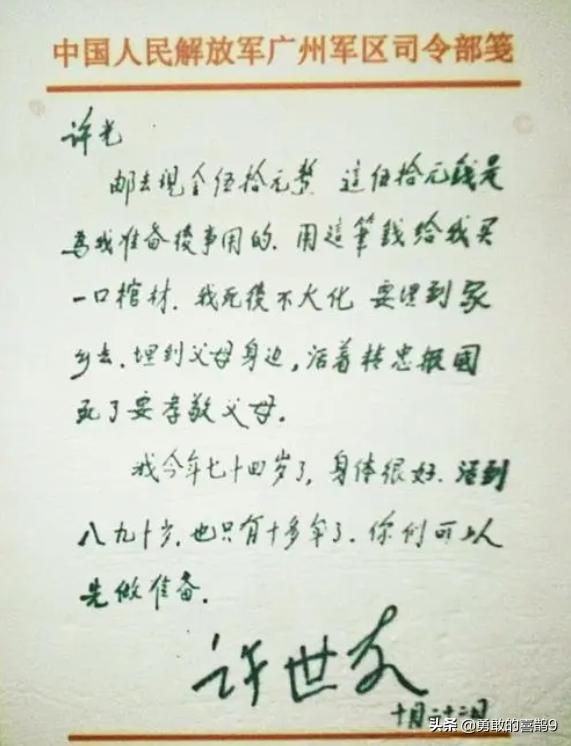 中国人民解放军广州军区司令部笺
许光
邮去现金伍拾元整 这伍拾元錢是
為我准备後事用的.用這筆錢给我买
一口棺材.我死後不火化 要埋到家
乡去.埋到父母身边,活着尽忠报国
死了要孝敬父母.
我今年七十四岁了,身体很好.活到
八九十岁.也只有十多年了.你们可以
先做准备.
许世友
十月二十二日
头条 @勇敢的喜鹊9